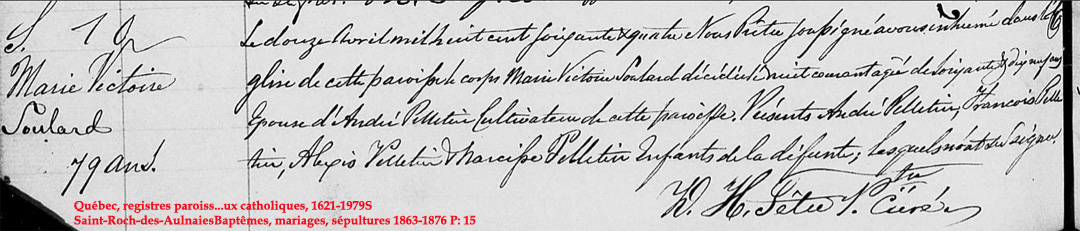 S. 19
Marie Victoire
Soulard
79 ans.
Le douze Avril mil huit cent soixante & quatre Nous Prêtre soussigné avons inhumé dans l'é
glise de cette paroisse le corps Marie Victoire Soulard décédée le huit courant agée de soixante & dix neuf ans
Epouse d'André Pelletier Cultivateur de cette paroisse. Présents André Pelletier, Francois Pelle
tier, Alexis Pelletier & Narcisse Pelletier Enfants de la défunte; lesquels n'ont su signer.
D. H. Têtu Ptre Curé
Québec, registres paroiss...ux catholiques, 1621-1979S
Saint-Roch-des-AulnaiesBaptêmes, mariages, sépultures 1863-1876 P: 15